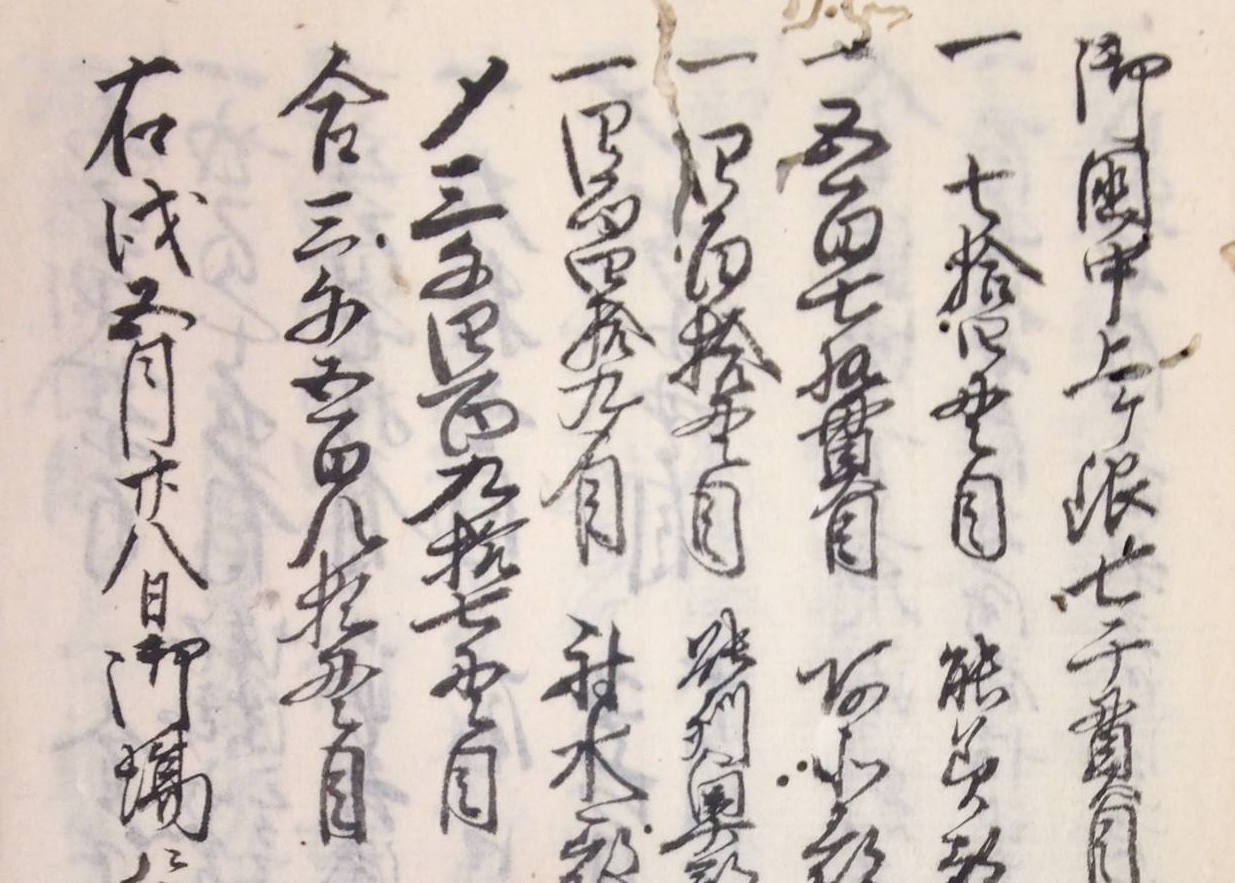 御國中上ケ銀七千貫目
一 七拾四貫目 能美郡
一 五百七拾貫目 河北郡
一 四百拾貫目 能州奥郡
一 四百四拾九貫目 射水郡
〆三千四百九拾七貫目
合三千五百八拾貫目
右戌五月廿八日御場